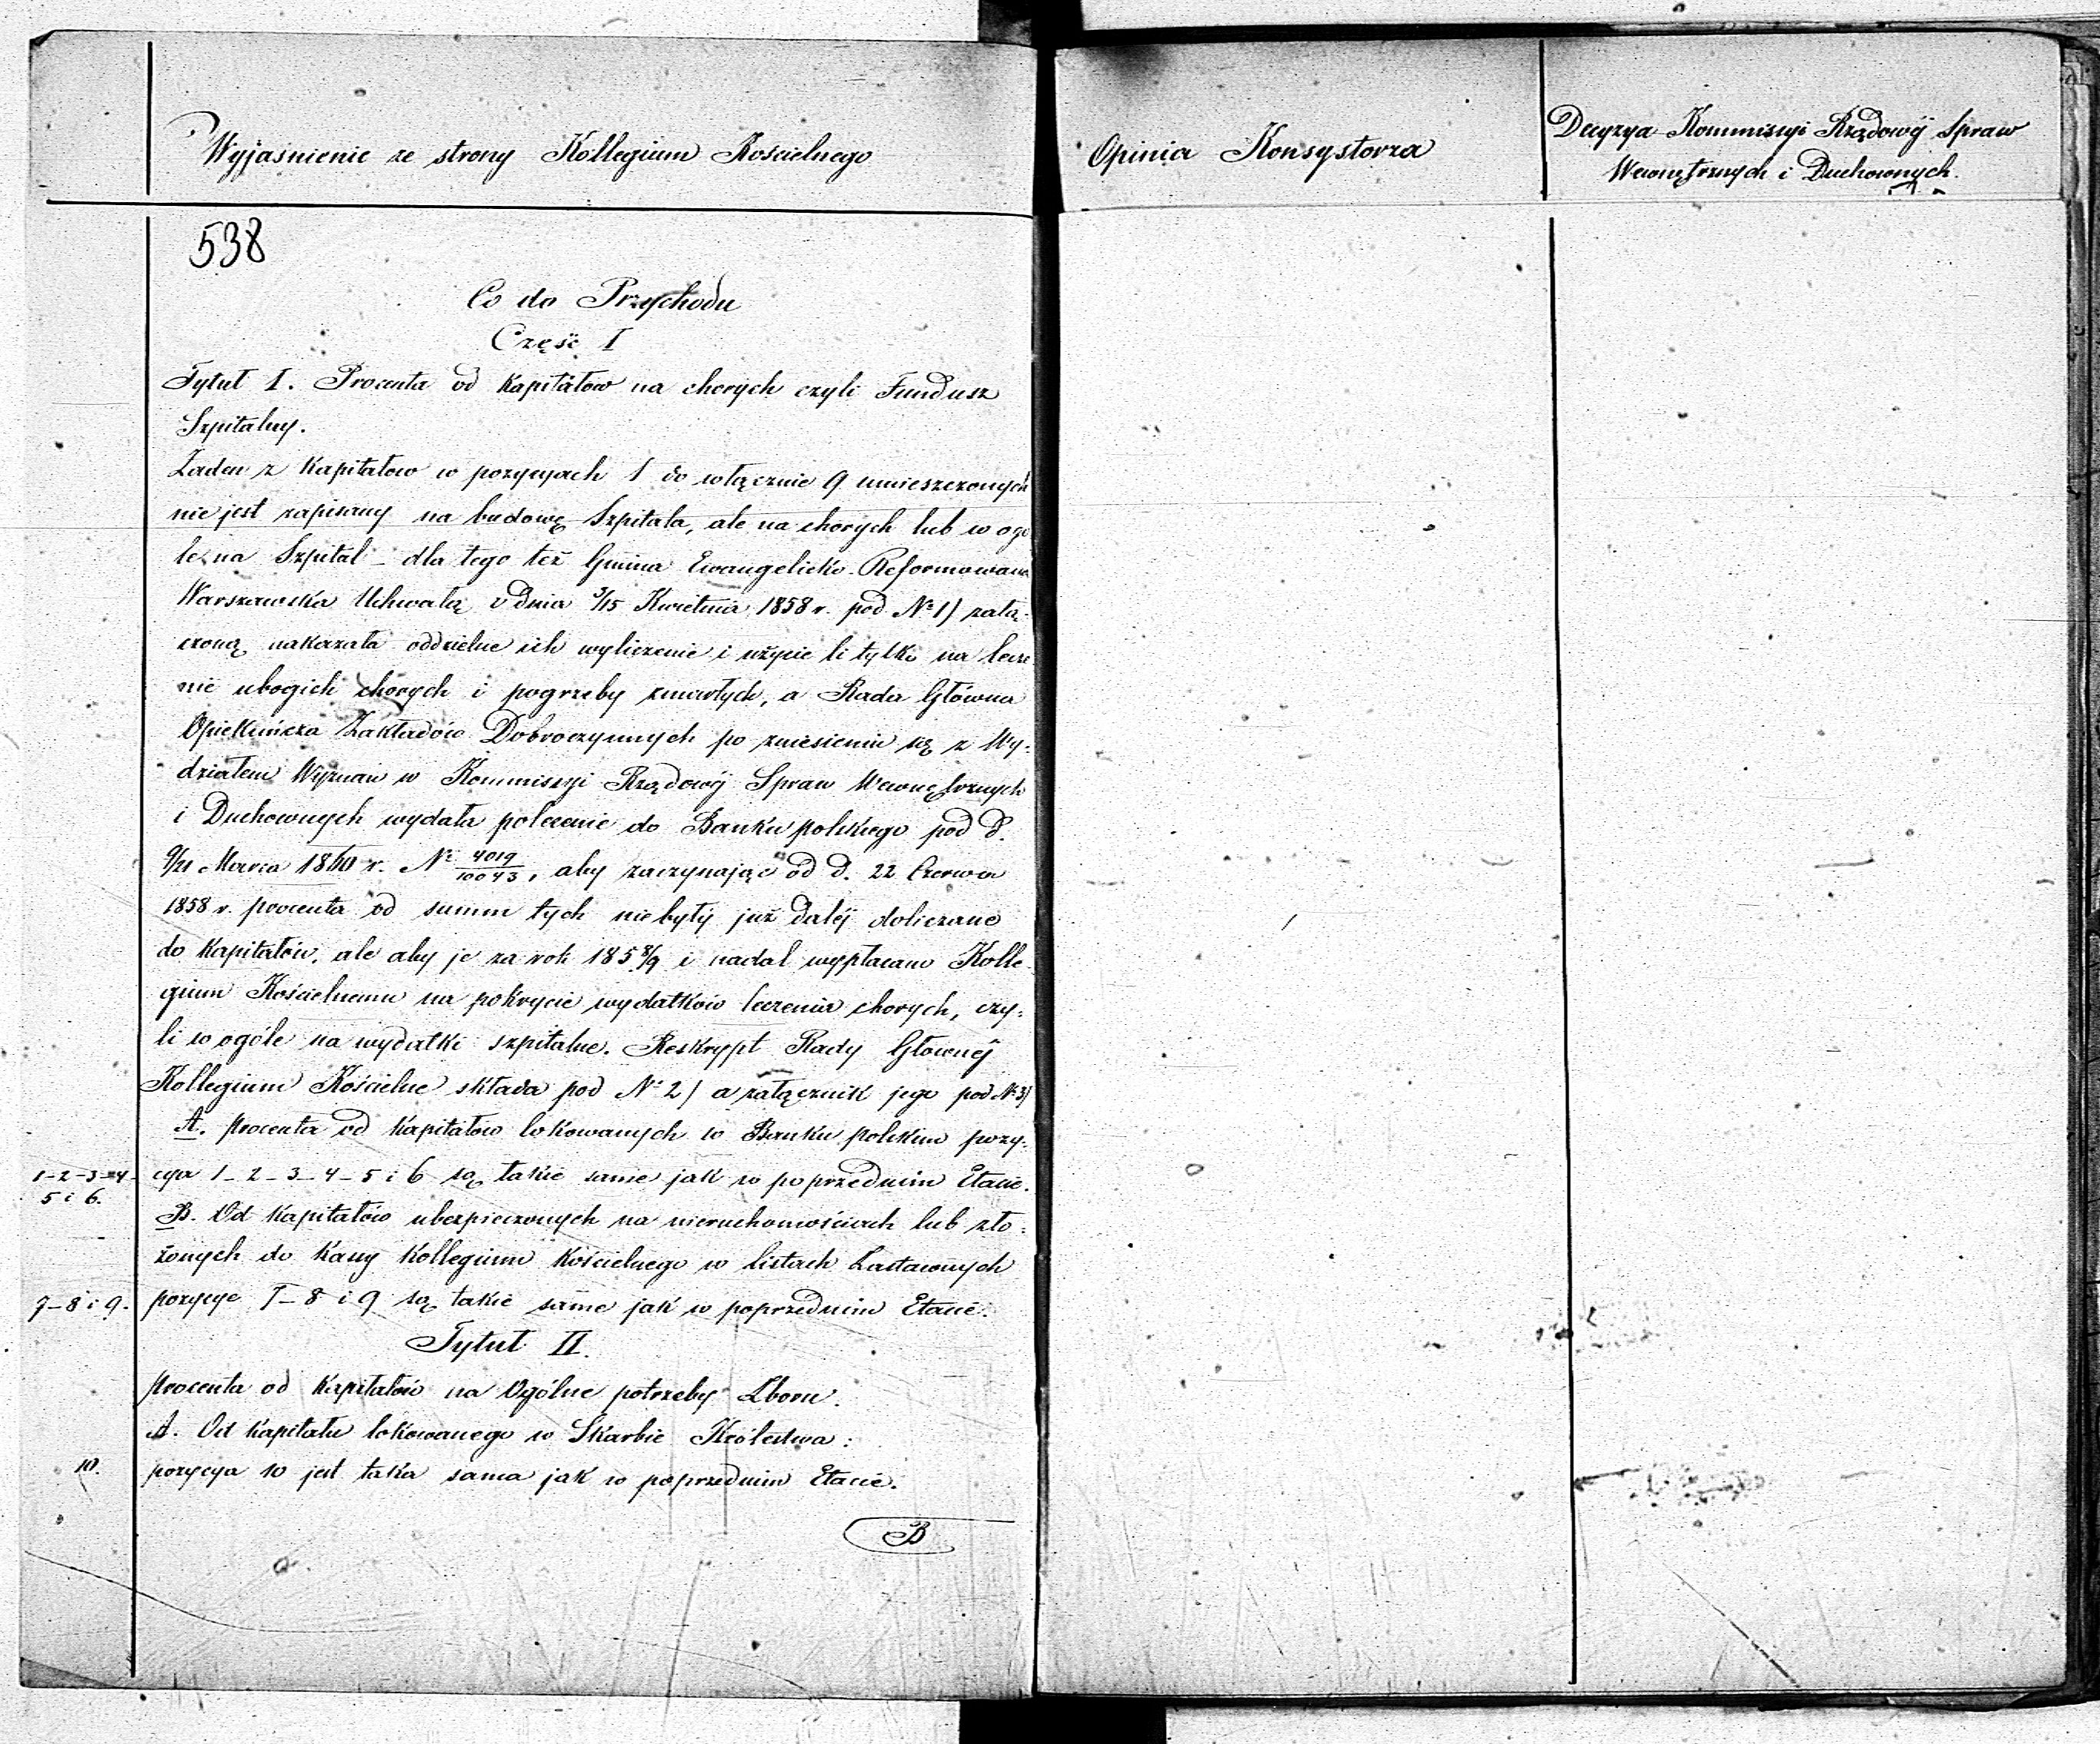 Wyjaśnienie ze strony Kollegium Kościelnego
538
Co do Przychodu
Część I
Tytuł I. Procenta od Kapitałow na chorych czyli Fundusz
Szpitalny.
Żaden z Kapitałow w pozycyach 1 do włącznie 9 umieszczonych
nie jest zapisany na budowę Szpitala, ale na chorych lub w ogó
le na Szpital – dla tego też Gmina Ewangelicko-Reformowana
Warszawska Uchwałą z dnia 3/15 Kwietnia 1858 r. pod № 1) załą-
czoną nakazała oddzielne ich wyliczenie i użycie li tylko na lecze
nie ubogich chorych i pogrzeby zmarłych, a Rada Główna
Opiekuńcza Zakładów Dobroczynnych po zniesieniu się z Wy-
działem Wyznań w Kommissyi Rządowéj Spraw Wewnętrznych
i Duchownych wydała polecenie do Banku polskiego pod d.
9/21 Marca 1860 r. № 4019/10043, aby zaczynając od d. 22 Czerwca
1858 r. procenta od summ tych nie były już daléj doliczane
do Kapitałów, ale aby je za rok 1858/9 i nadal wypłacano Kolle-
gium Kościelnemu na pokrycie wydatków leczenia chorych, czy-
li w ogóle na wydatki szpitalne. Reskrypt Rady Głownéj
Kollegium Kościelne składa pod № 2) a załącznik jego pod № 3)
A. Procenta od Kapitałów lokowanych w Banku polskim pozy-
1-2-3-4- cya 1-2-3-4-5 i 6 są takie same jak w poprzednim Etacie.
5 i 6.
B. Od Kapitałów ubezpieczonych na nieruchomościach lub zło-
żonych do Kassy Kollegium Kościelnego w listach Zastawnych
7-8 i 9. pozycye 7-8 i 9 są takie same jak w poprzednim Etacie.
Tytuł II.
Procenta od Kapitałów na Ogólne potrzeby Zboru.
A. Od Kapitału lokowanego w Skarbie Królestwa:
10. pozycya 10 jest taka sama jak w poprzednim Etacie.
B
Opinia Konsystorza
Decyzya Kommissyi Rządowéj Spraw
Wewnętrznych i Duchownych.